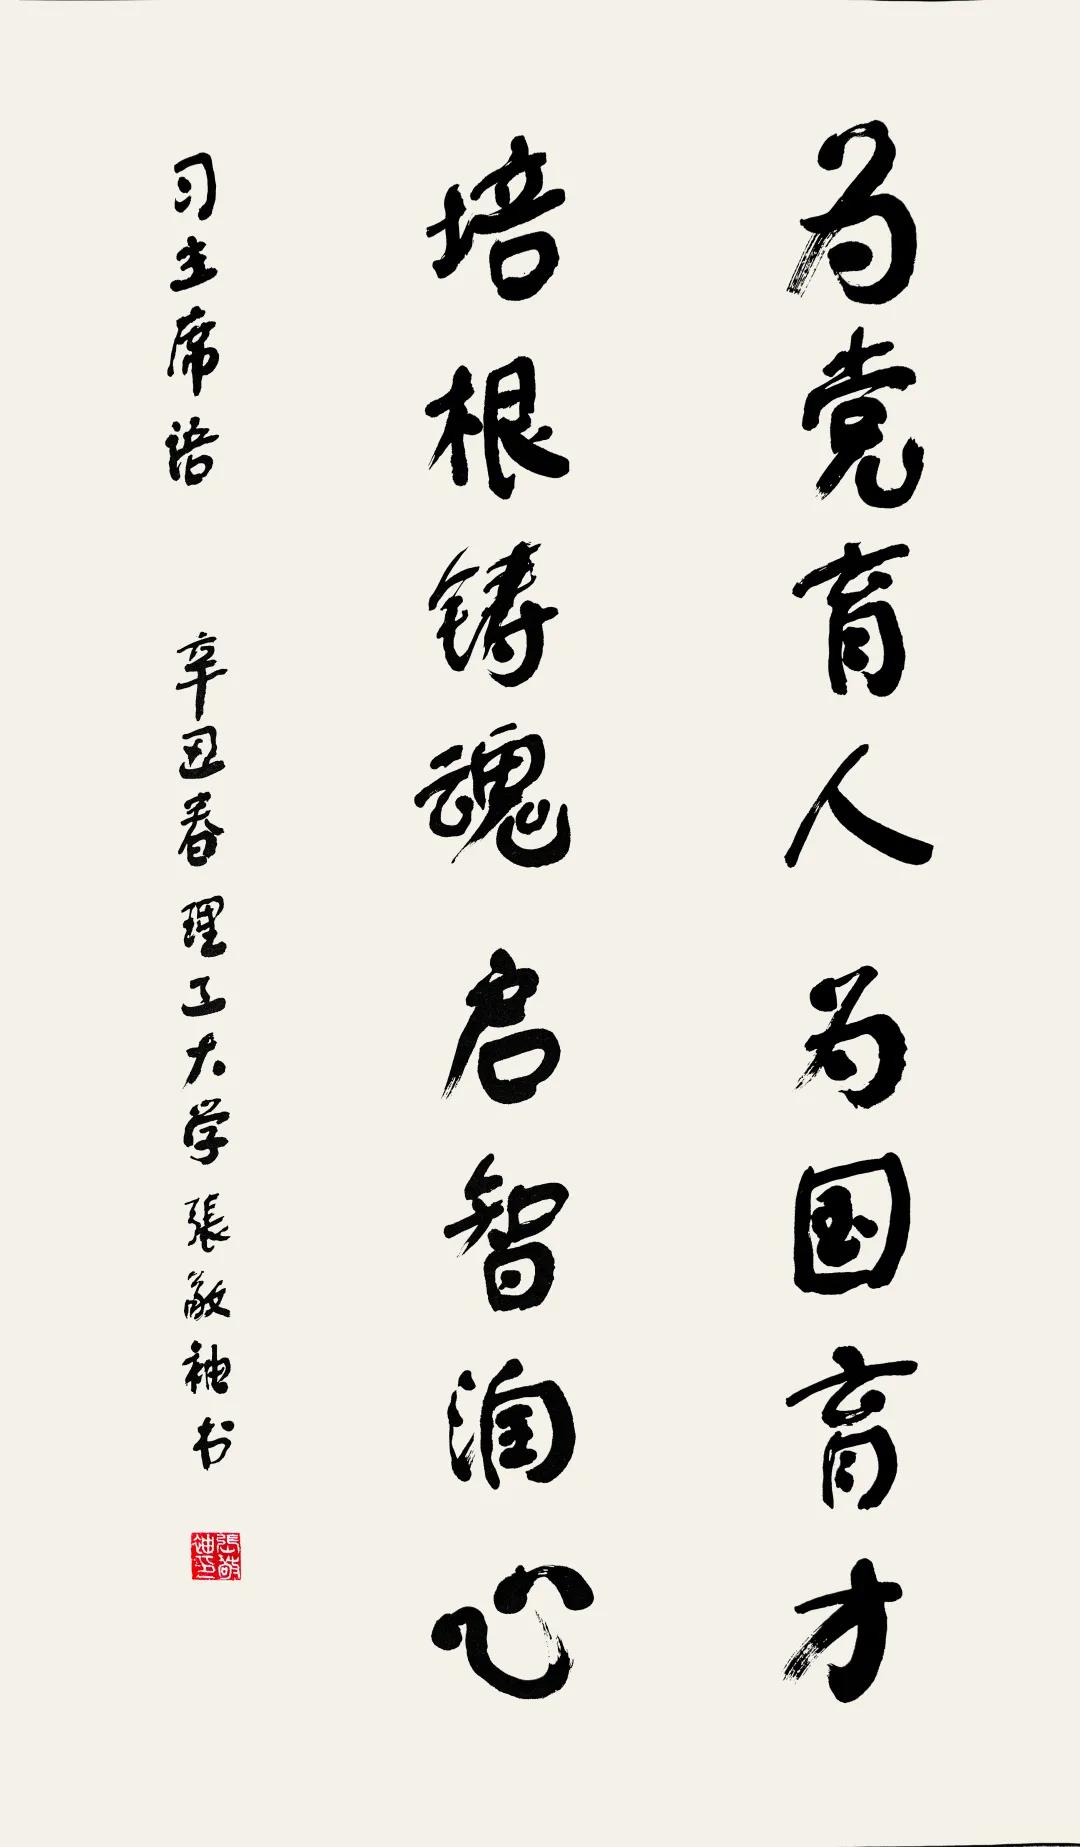 为党育人为国育才
培根铸魂启智润心
习主席语 辛丑春理工大学張敬袖书